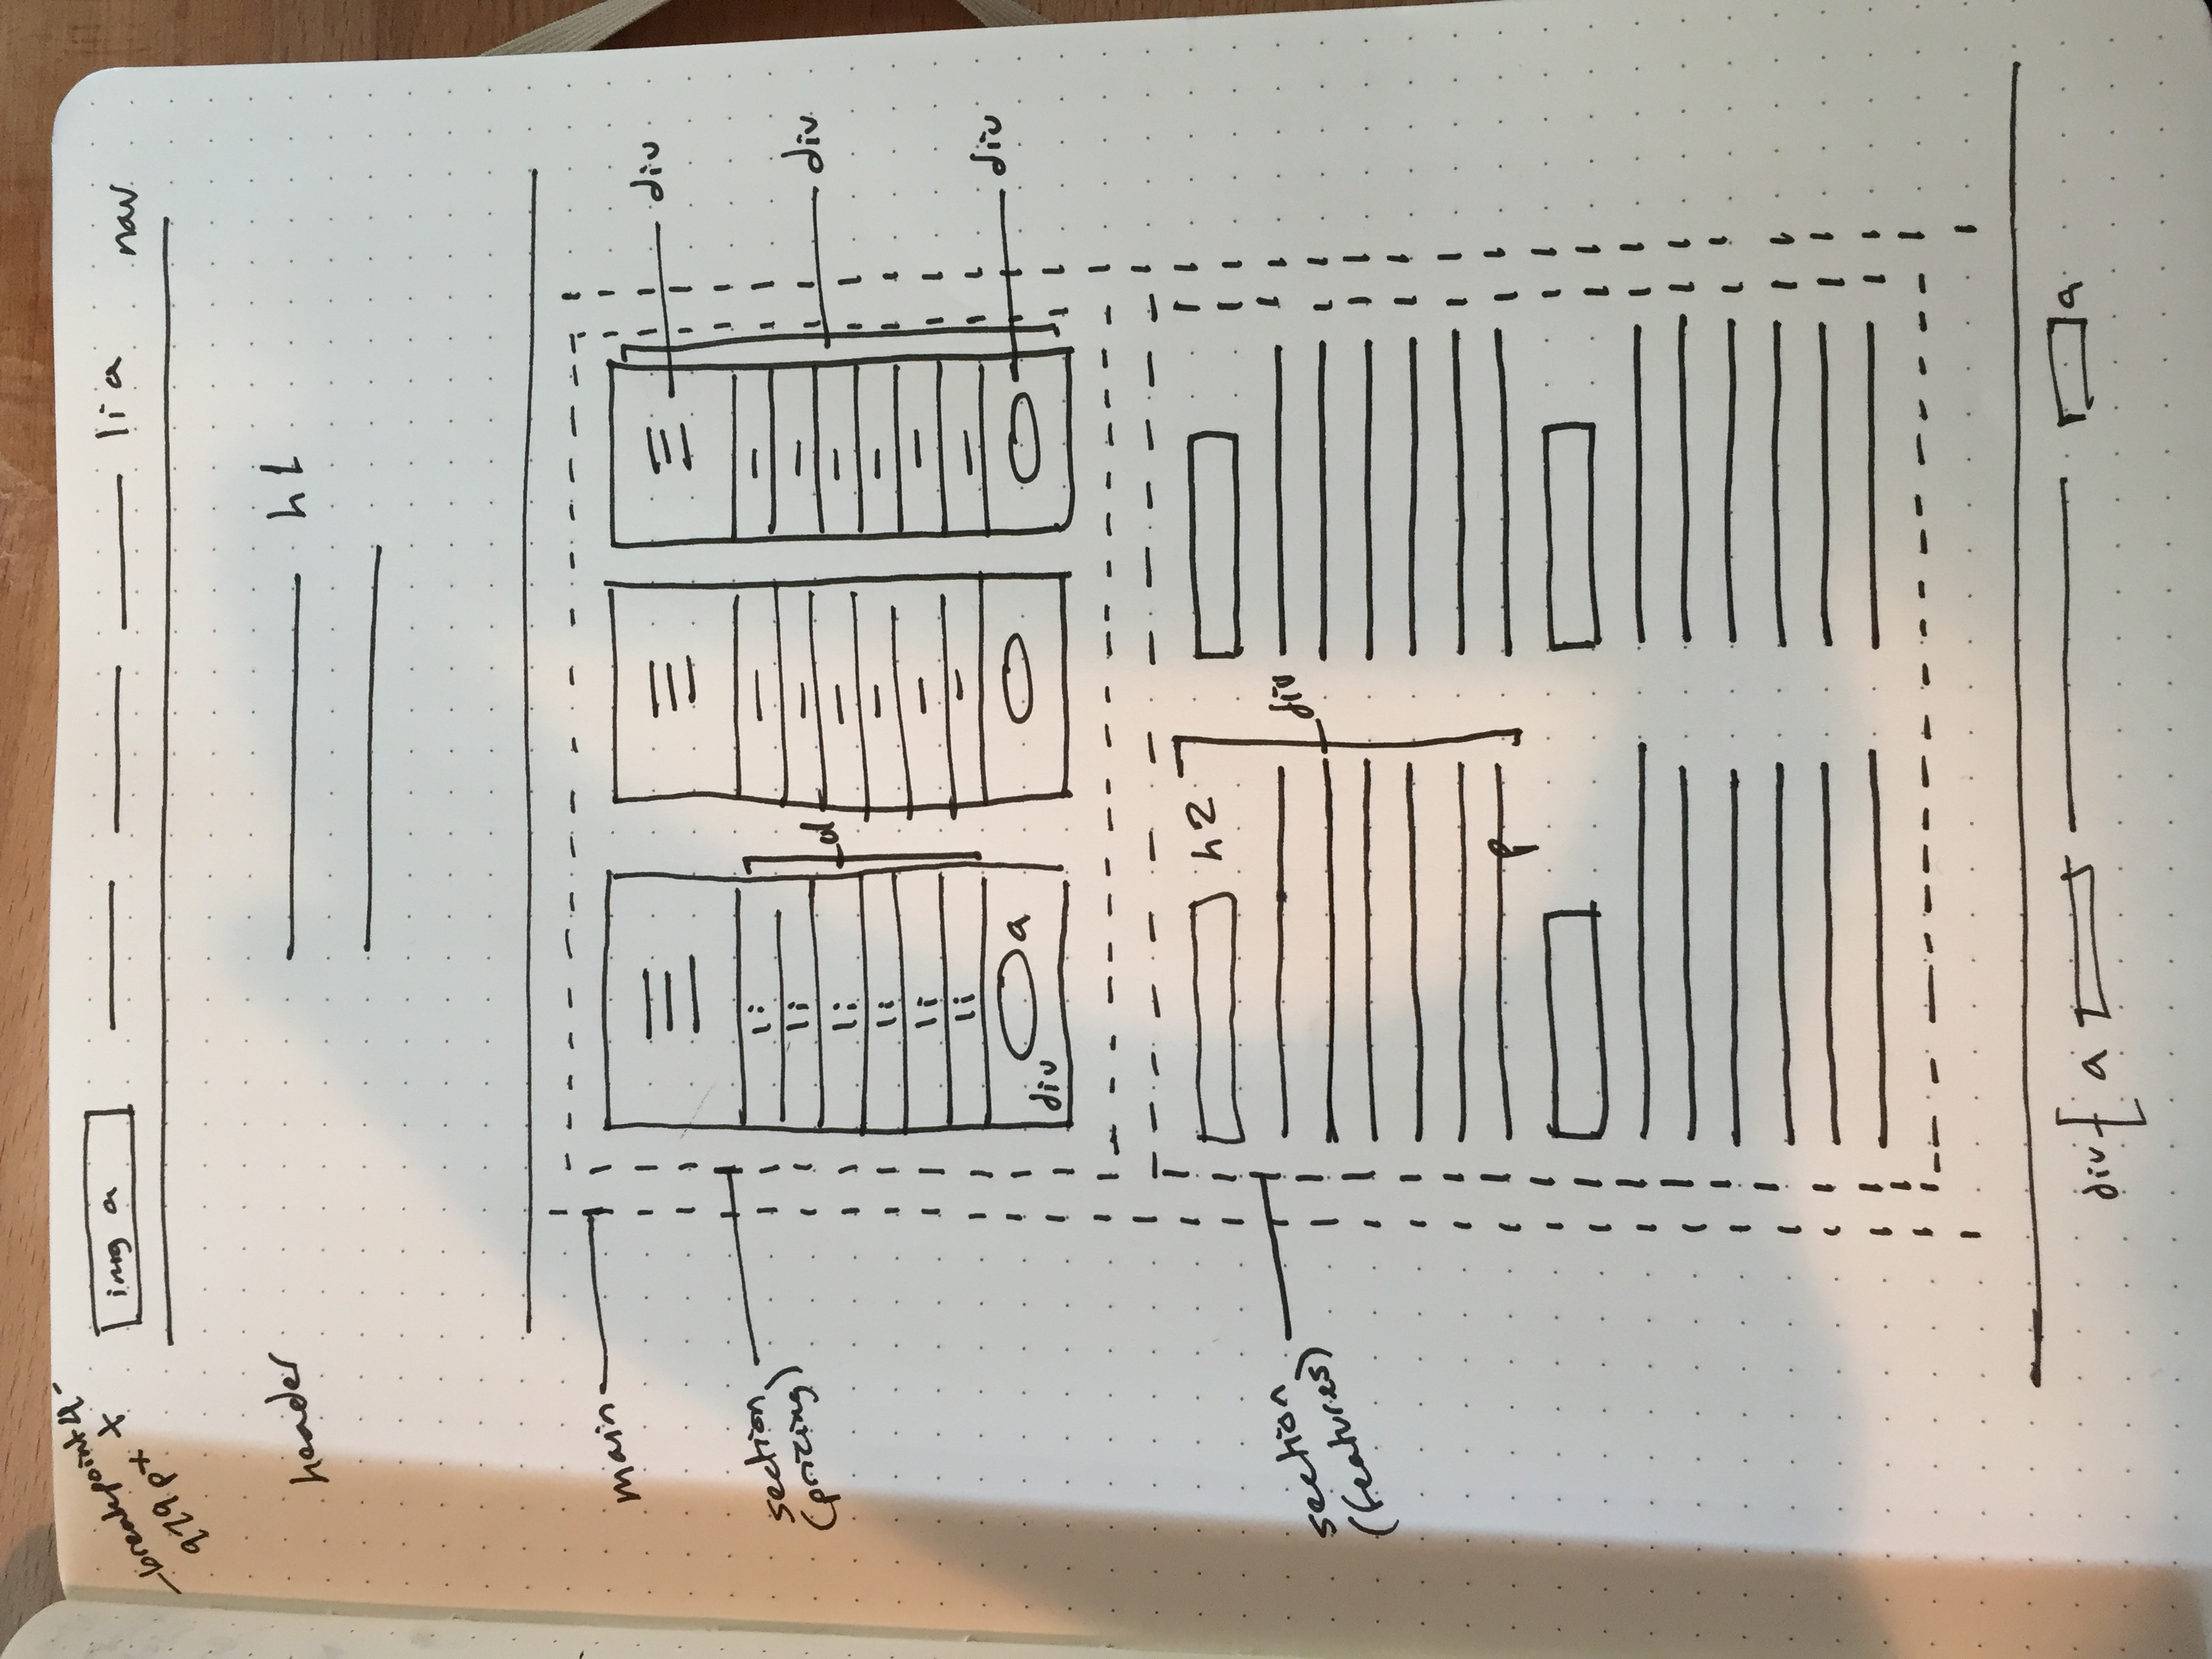 breakpoint 4-
979px +
img a
li a
nav
header
h1
main
div
section
(pricing)
li
li
li
li
li
li
ul
div
a
div
div
h2
div
section
(features)
p
div
a
a